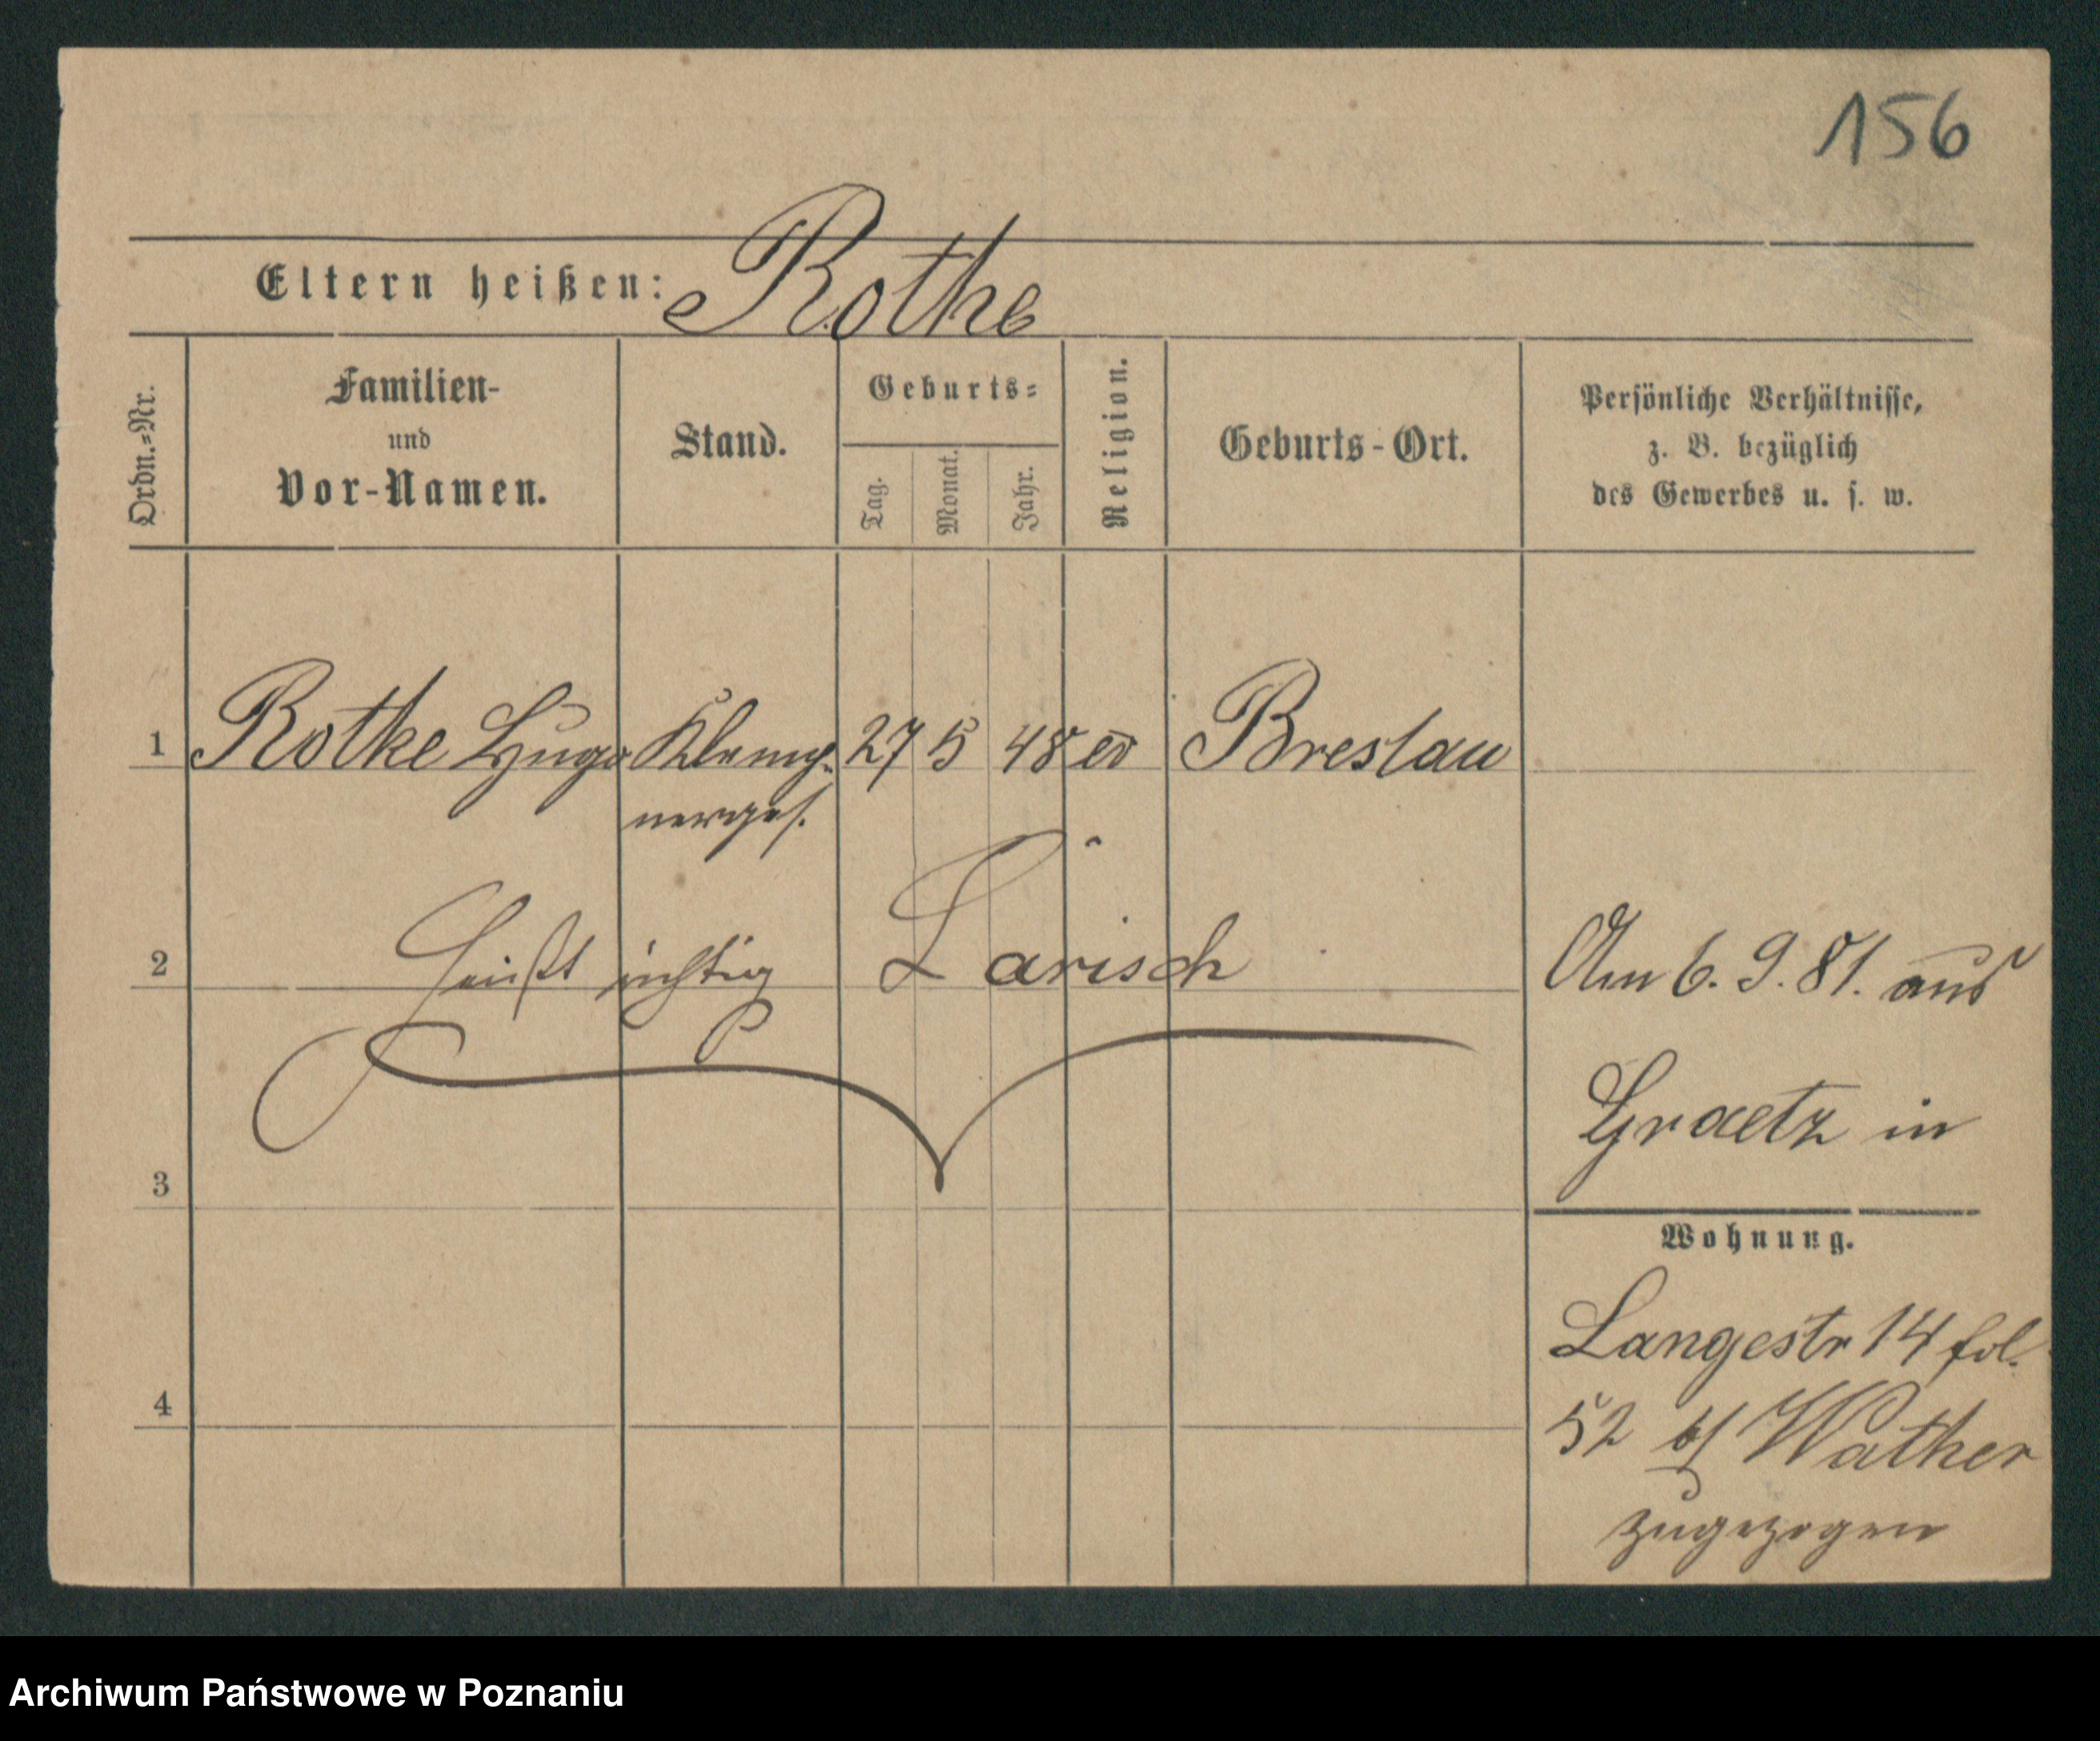 156
Eltern heißen: Rothe
Ordn.=Nr.
Familien-
und
Vor-Namen.
Stand.
Geburts=
Tag.
Monat.
Jahr.
Religion.
Geburts-Ort.
Persönliche Verhältnisse,
z. B. bezüglich
des Gewerbes u. s. w.
1 Rothe Hugo Klemp= 27 5 48 ev Breslau
nerges.
2 heißt richtig Larisch
Am 6. 9. 81. aus
Graetz in
3
Wohnung.
Langestr 14 fol.
4
52 b/ Wather
zugezogen
Archiwum Państwowe w Poznaniu